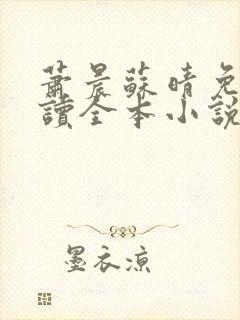 蕭晨蘇晴免
讀全本小說
墨衣涼